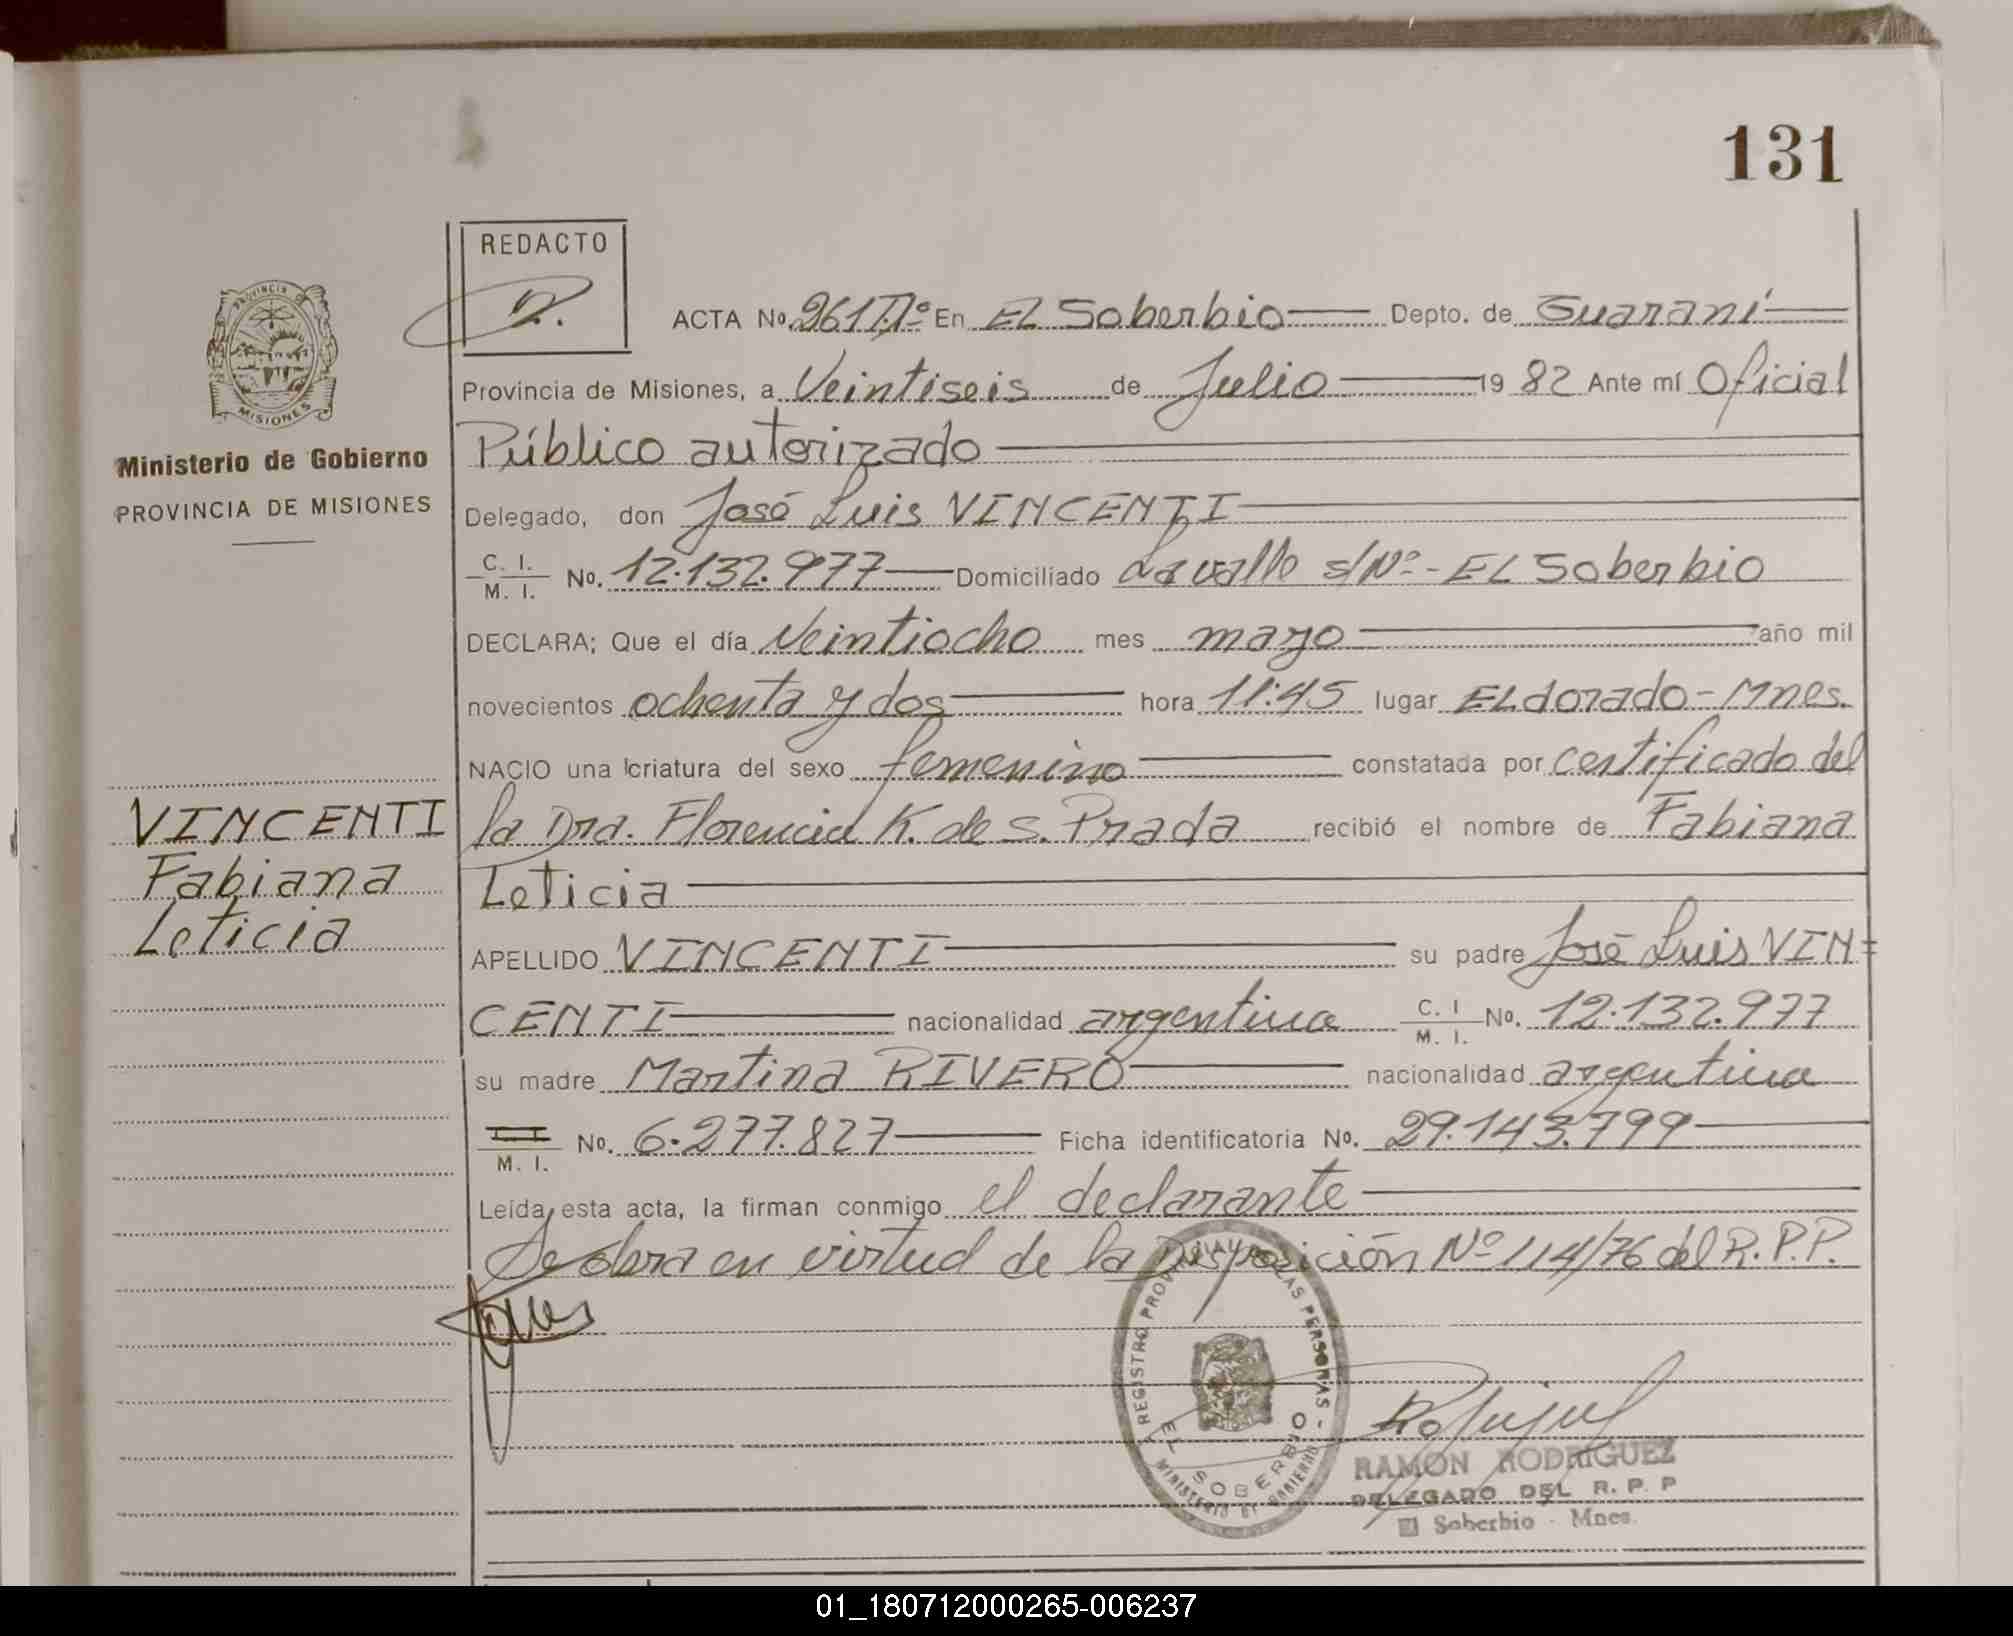 131
REDACTO
ACTA No. 261 Tº 1º En EL Soberbio Depto. de Guaraní
Provincia de Misiones, a Veintiseis de Julio 1982 Ante mí Oficial
Público autorizado
Delegado, don José Luis VINCENTI
C. I.
M. I. No. 12.132.977 Domiciliado Lavalle s/Nº - EL Soberbio
DECLARA; Que el día Veintiocho mes mayo año mil
novecientos ochenta y dos hora 11:45 lugar ELdorado - Mnes.
NACIO una criatura del sexo femenino constatada por certificado del
la Dra. Florencia K. de S. Prada recibió el nombre de Fabiana
Leticia
APELLIDO VINCENTI su padre José Luis VIN=
CENTI nacionalidad argentina C. I
M. I. No. 12.132.977
su madre Martina RIVERO nacionalidad argentina
M. I. No. 6.277.827 Ficha identificatoria No. 29.143.799
Leída esta acta, la firman conmigo el declarante
Se labra en virtud de la Disposición Nº 114/76 del R.P.P.
PROVINCIA DE
MISIONES
Ministerio de Gobierno
PROVINCIA DE MISIONES
VINCENTI
Fabiana
Leticia
REGISTRO PROVINCIAL DE LAS PERSONAS -
EL SOBERBIO
MINISTERIO DE GOBIERNO
RAMON RODRIGUEZ
DELEGADO DEL R. P. P
El Soberbio - Mnes.
01_180712000265-006237